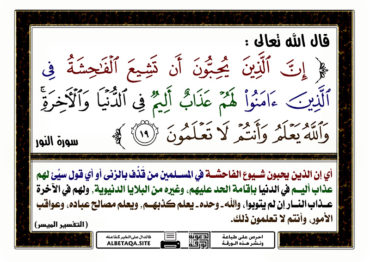 قال الله تعالى :
﴿ إِنَّ الَّذِينَ يُحِبُّونَ أَن تَشِيعَ الْفَاحِشَةُ فِي
الَّذِينَ ءَامَنُوا لَهُمْ عَذَابٌ أَلِيمٌ فِي الدُّنْيَا وَالْآخِرَةِ ۚ
وَاللَّهُ يَعْلَمُ وَأَنتُمْ لَا تَعْلَمُونَ ١٩ ﴾ سورة النور
أي إن الذين يحبون شيوع الفاحشة في المسلمين من قذف بالزنى أو أي قول سيّئ لهم
عذاب أليم في الدنيا بإقامة الحد عليهم، وغيره من البلايا الدنيوية، ولهم في الآخرة
عذاب النار إن لم يتوبوا، والله -وحده- يعلم كذبهم، ويعلم مصالح عباده، وعواقب
الأمور، وأنتم لا تعلمون ذلك. (التفسير الميسر)
احرص على طباعة
ونشر هذه الورقة
ALBETAQA.SITE